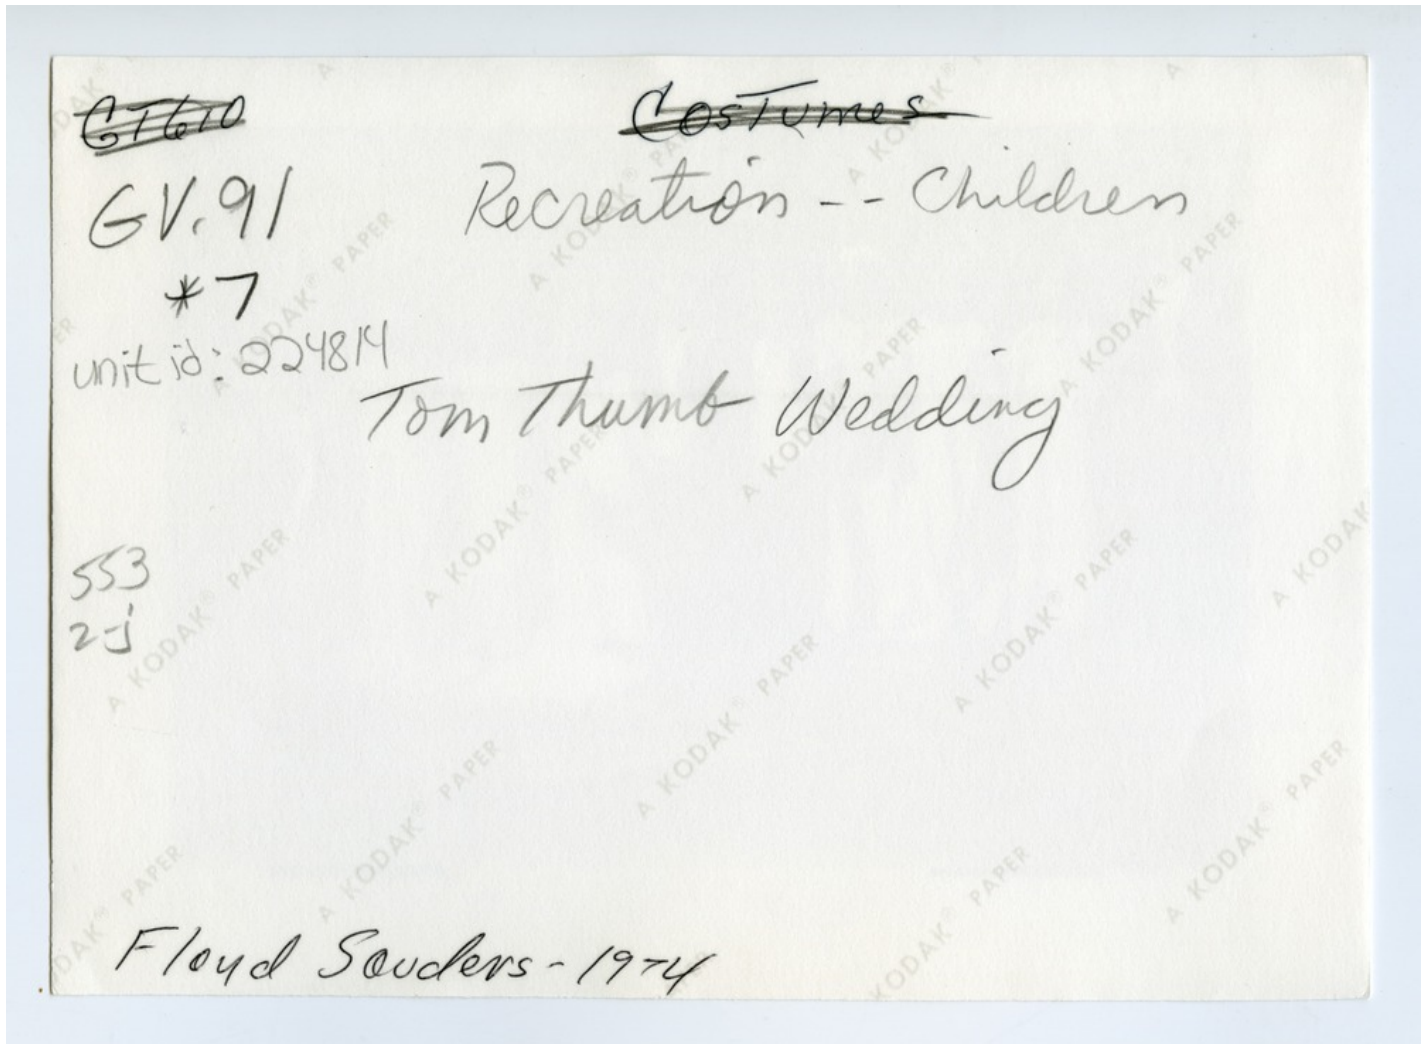 GT610 Costumes
GV.91 Recreation -- Children
*7
unit id: 224814
Tom Thumb Wedding
553
2-j
Floyd Souders - 1974
A KODAK® PAPER